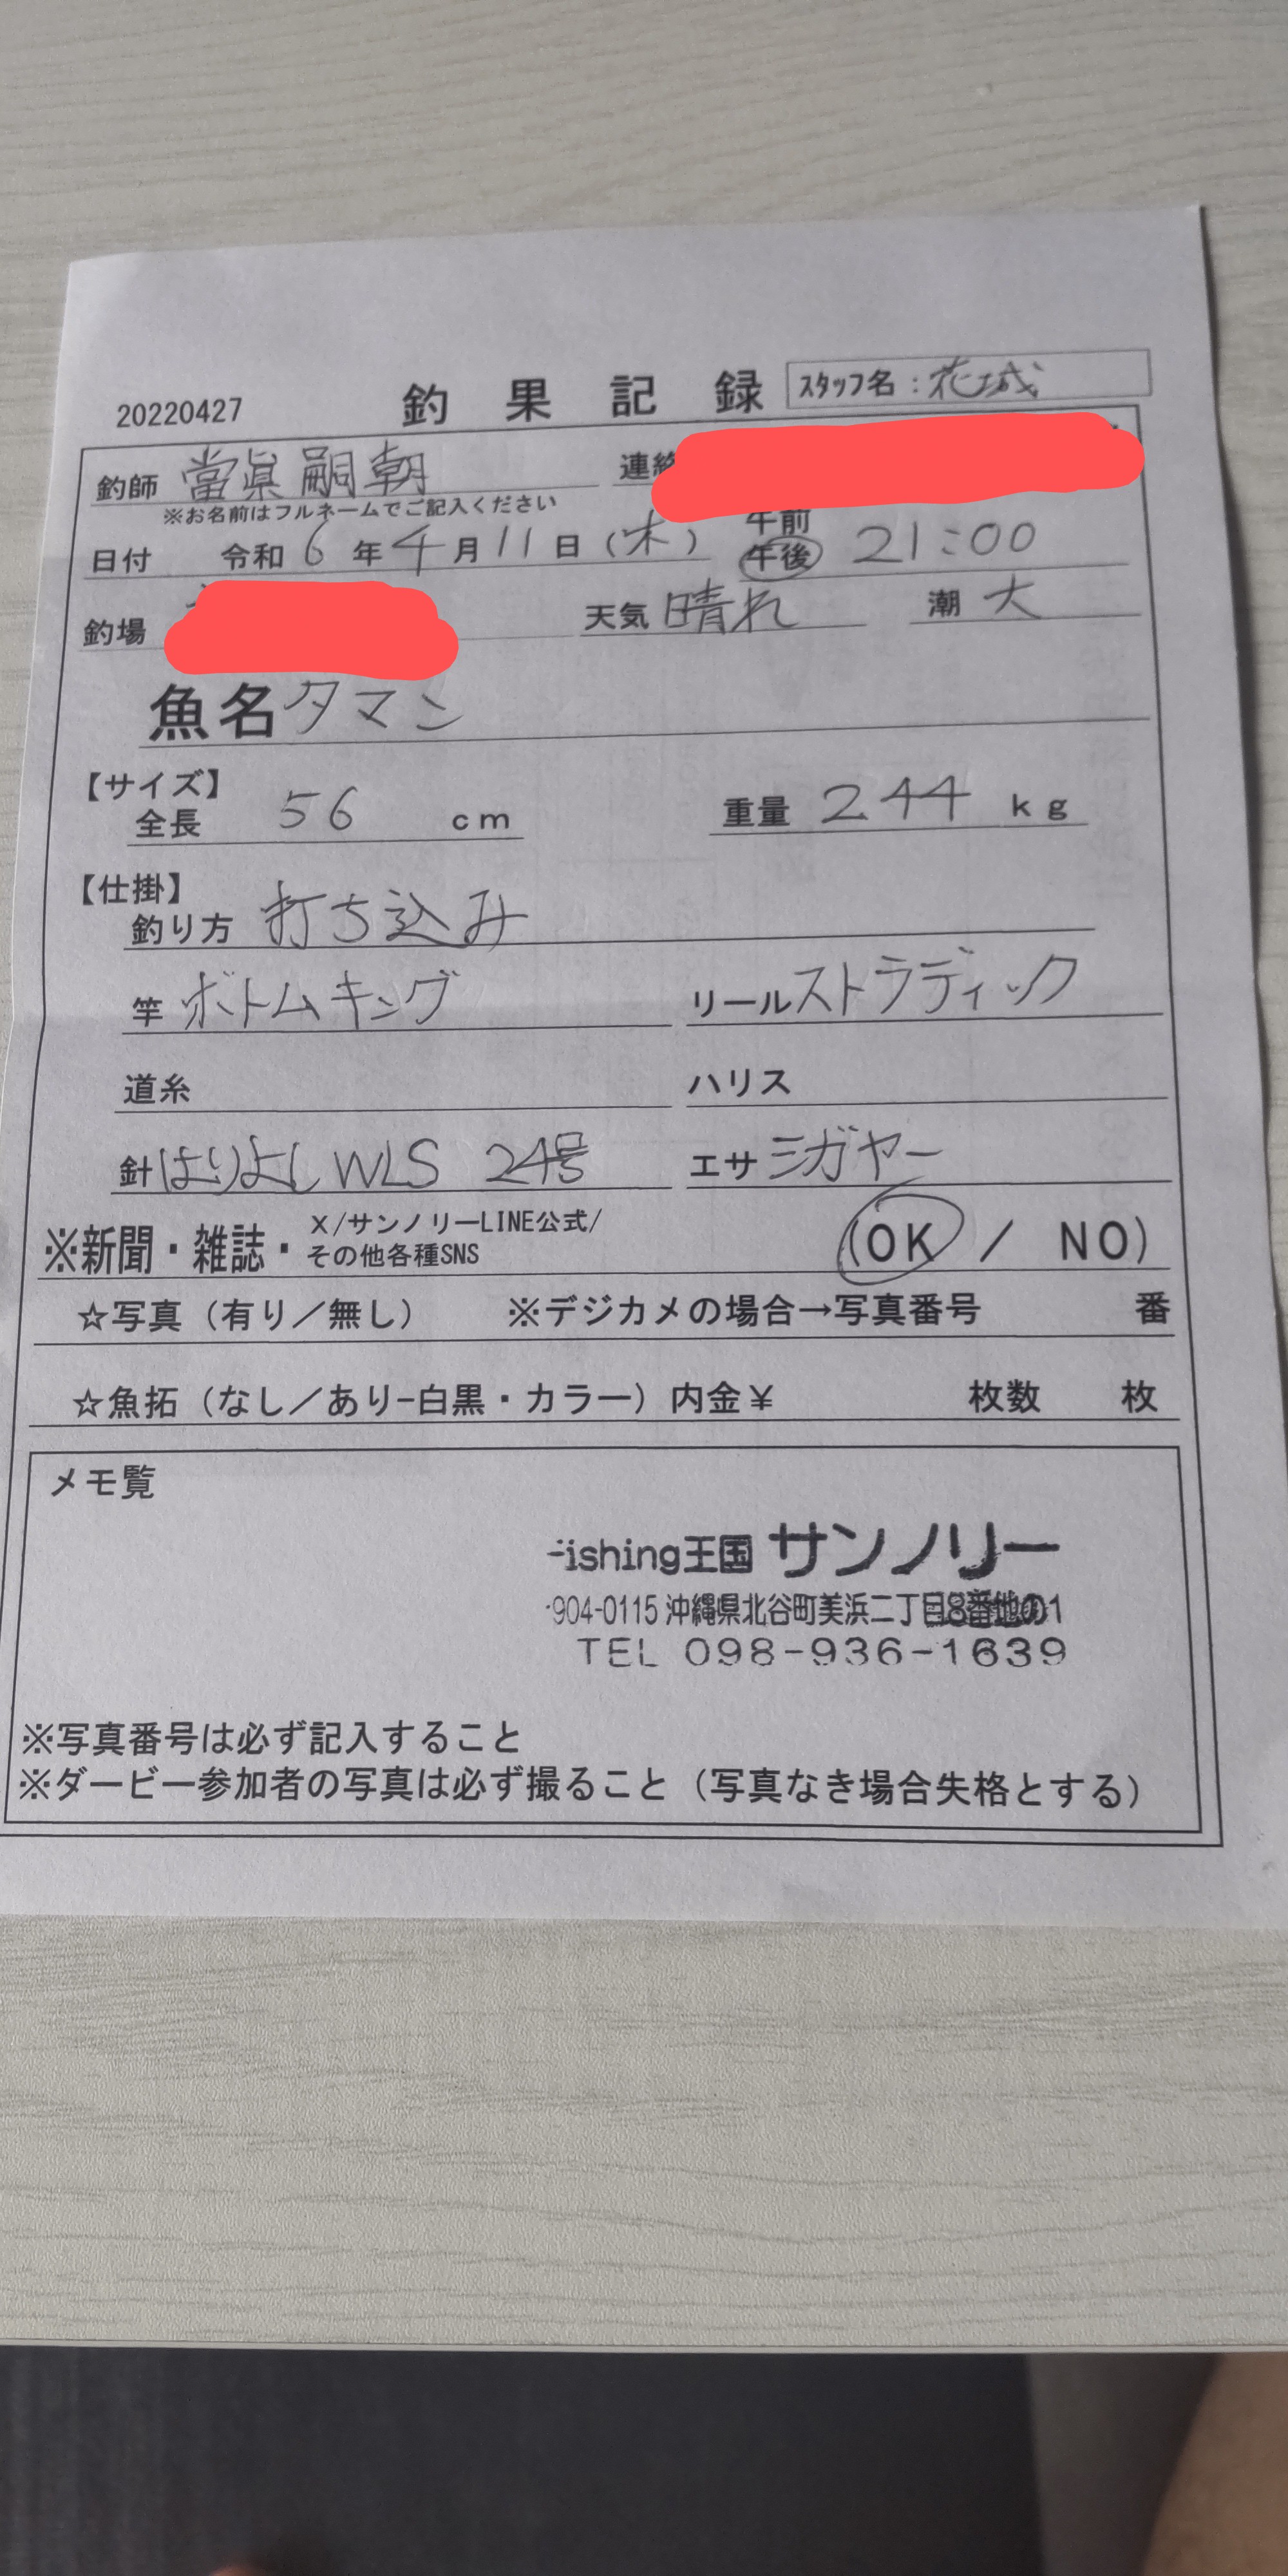 20220427 釣果記録 スタッフ名：花城
釣師 當眞嗣朝 連絡
※お名前はフルネームでご記入ください
日付 令和6年4月11日(木) 午前 午後 21:00
釣場 天気 晴れ 潮 大
魚名 タマン
【サイズ】
全長 56 cm 重量 2.44 kg
【仕掛】
釣り方 打ち込み
竿 ボトムキング リール ストラディック
道糸 ハリス
針 はりよし WLS 24号 エサ シガヤー
※新聞・雑誌・X/サンノリーLINE公式/その他各種SNS (OK / NO)
☆写真（有り／無し） ※デジカメの場合→写真番号 番
☆魚拓（なし／あり−白黒・カラー）内金￥ 枚数 枚
メモ覧
ishing王国 サンノリー
904-0115 沖縄県北谷町美浜二丁目8番地の1
TEL 098-936-1639
※写真番号は必ず記入すること
※ダービー参加者の写真は必ず撮ること（写真なき場合失格とする）